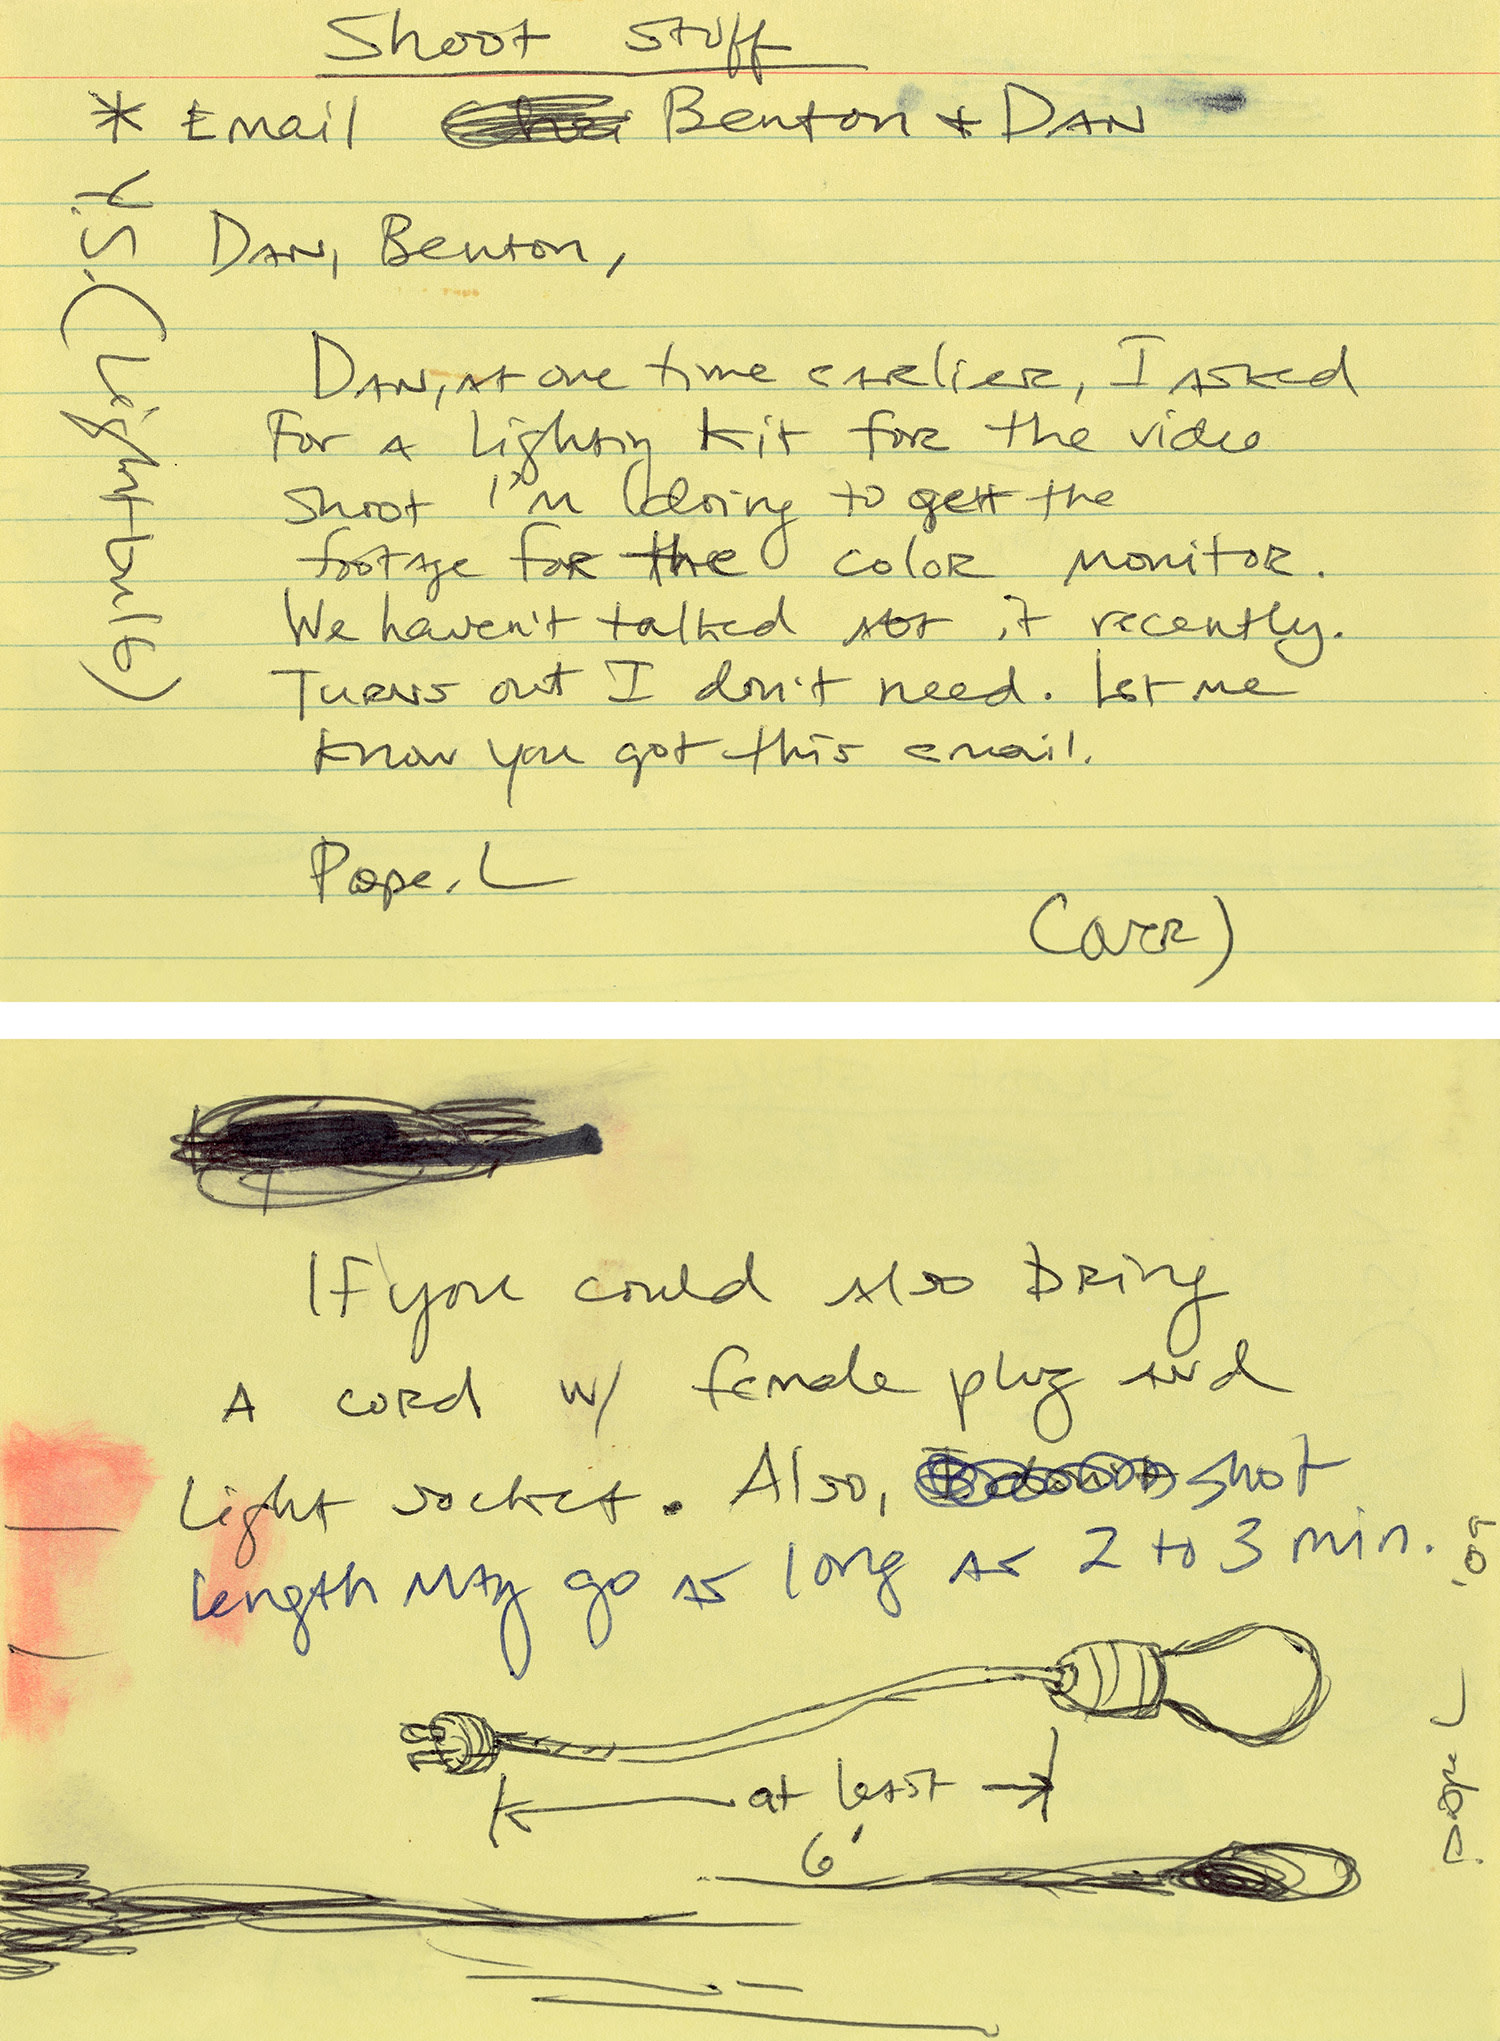 Shoot stuff
* Email Benton + DAN
DAN, Benton,
DAN, at one time earlier, I asked
For a lighting kit for the video
shoot I'm doing to get the
footage for the color monitor.
We haven't talked abt it recently.
Turns out I don't need. Let me
know you got this email.
Pope.L
(over)
(Lightbulb)
If you could also bring
a cord w/ female plug and
light socket. Also, shot
length may go as long as 2 to 3 min.
at least
6'
Pope L '07